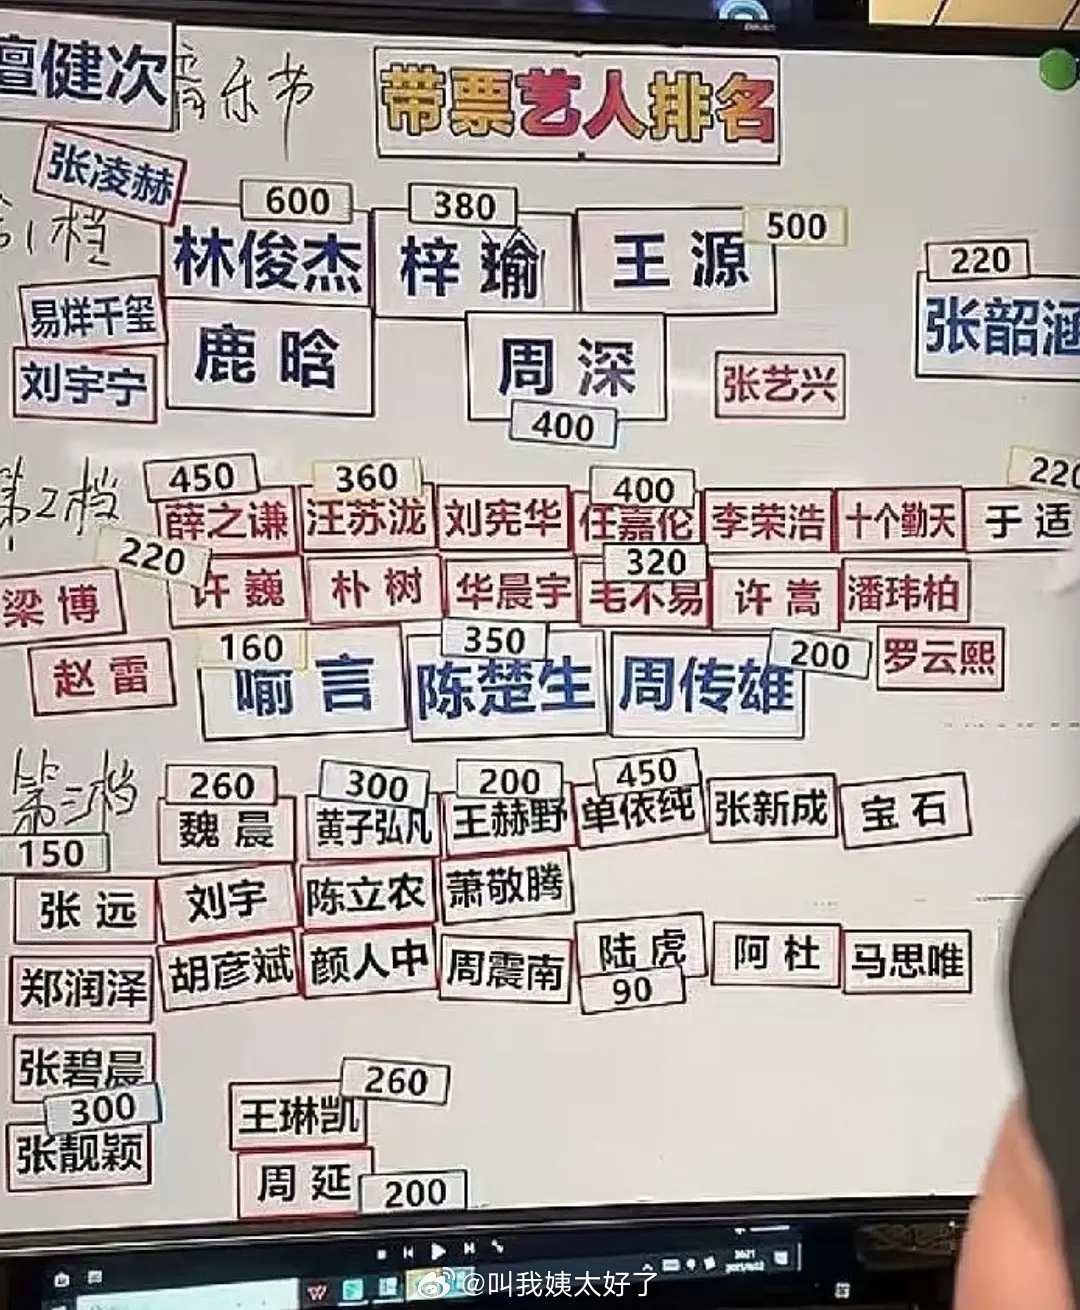 檀健次 音乐节 带票艺人排名
张凌赫
第1档 600 380 500
林俊杰 梓瑜 王源 220
易烊千玺 张韶涵
刘宇宁 鹿晗 周深 张艺兴
400
第2档 450 360 400 220
薛之谦 汪苏泷 刘宪华 任嘉伦 李荣浩 十个勤天 于适
220 320
梁博 许巍 朴树 华晨宇 毛不易 许嵩 潘玮柏
赵雷 160 350 200 罗云熙
喻言 陈楚生 周传雄
第三档 260 300 200 450
魏晨 黄子弘凡 王赫野 单依纯 张新成 宝石
150
张远 刘宇 陈立农 萧敬腾
郑润泽 胡彦斌 颜人中 周震南 陆虎 阿杜 马思唯
90
张碧晨
300 260
张靓颖 王琳凯
周延 200
@叫我姨太好了